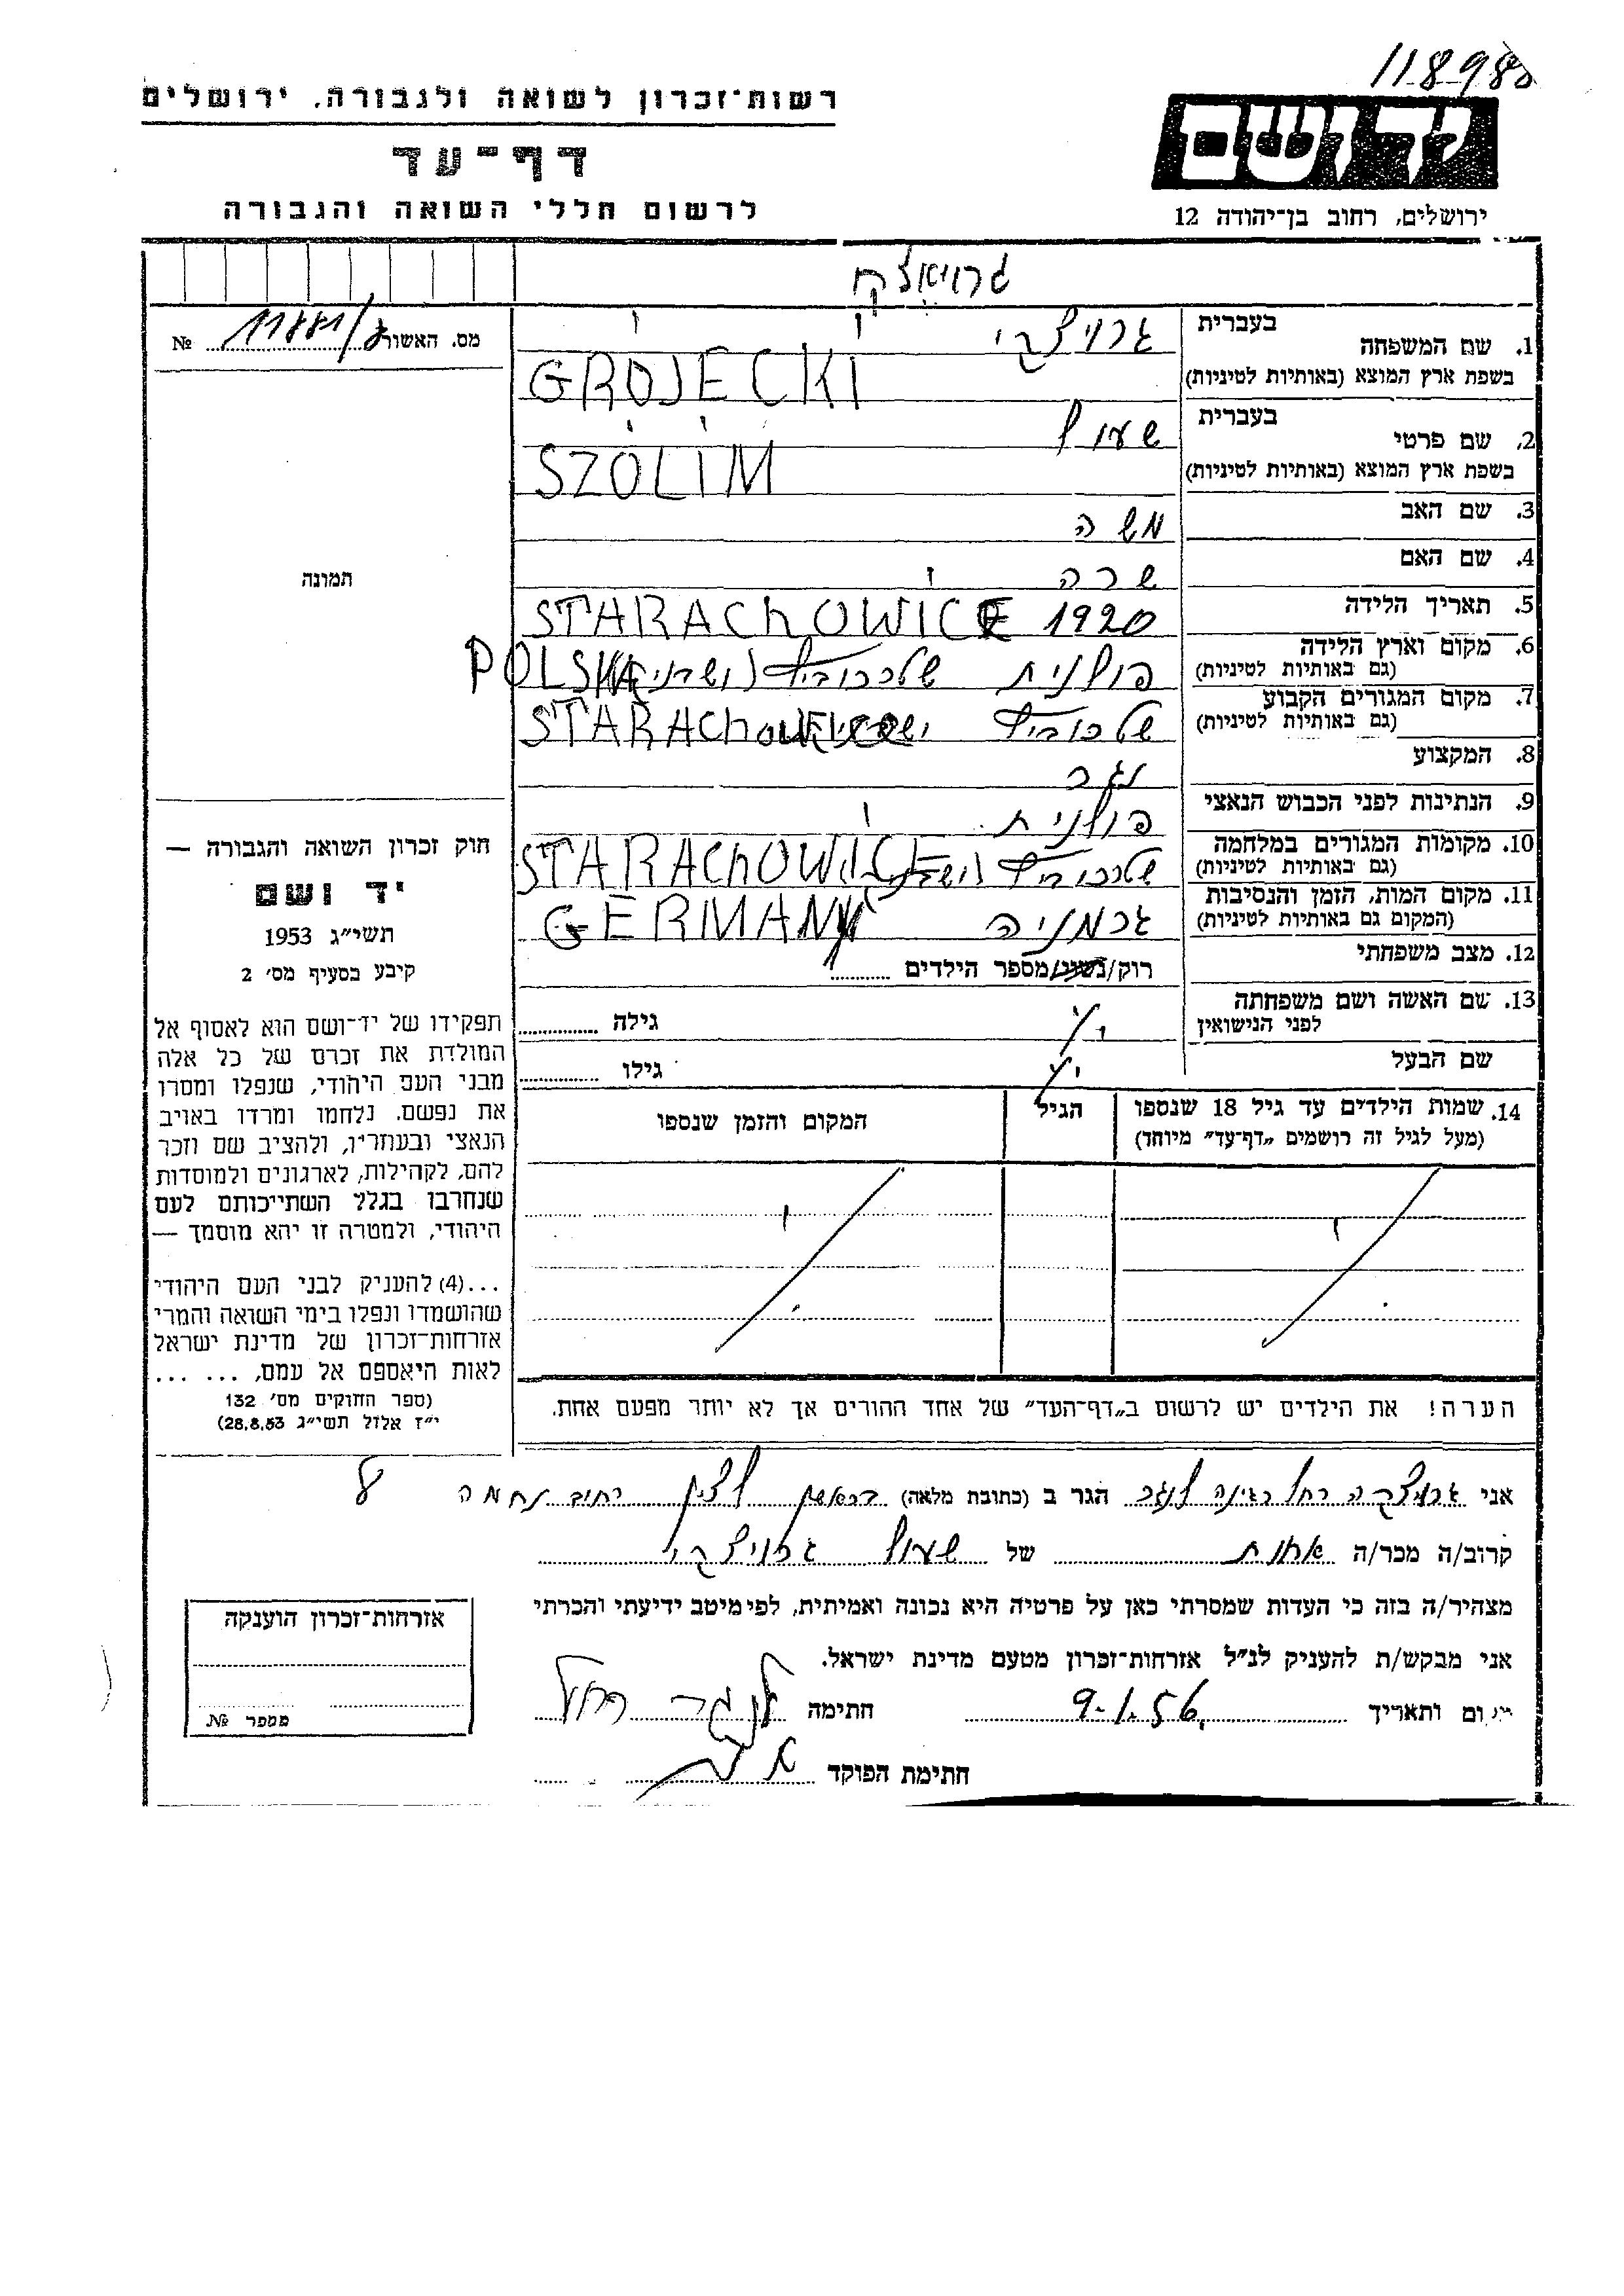 118980
רשות־זכרון לשואה ולגבורה, ירושלים
דף־עד
לרשום חללי השואה והגבורה
יד ושם
ירושלים, רחוב בן־יהודה 12
מס. האשור № 
1. שם המשפחה בעברית גרויצקי
בשפת ארץ המוצא (באותיות לטיניות) GROJECKI
2. שם פרטי בעברית שאול
בשפת ארץ המוצא (באותיות לטיניות) SZOLIM
3. שם האב משה
4. שם האם שרה
5. תאריך הלידה 1920 STARACHOWICE
6. מקום וארץ הלידה (גם באותיות לטיניות) פולנית POLSKA
7. מקום המגורים הקבוע (גם באותיות לטיניות) STARACHOWICE
8. המקצוע נגר
9. הנתינות לפני הכבוש הנאצי פולנית
10. מקומות המגורים במלחמה (גם באותיות לטיניות) STARACHOWICE
11. מקום המות, הזמן והנסיבות (המקום גם באותיות לטיניות) גרמניה GERMANY
12. מצב משפחתי רוק/נשוי/מספר הילדים
13. שם האשה ושם משפחתה לפני הנישואין גילה
שם הבעל גילו
14. שמות הילדים עד גיל 18 שנספו (מעל לגיל זה רושמים „דף־עד" מיוחד) הגיל המקום והזמן שנספו
הערה! את הילדים יש לרשום ב„דף־העד" של אחד ההורים אך לא יותר מפעם אחת.
תמונה
חוק זכרון השואה והגבורה —
יד ושם
תשי״ג 1953
קיבע בסעיף מס׳ 2
תפקידו של יד־ושם הוא לאסוף אל
המולדת את זכרם של כל אלה
מבני העם היהודי, שנפלו ומסרו
את נפשם, נלחמו ומרדו באויב
הנאצי ובעוזריו, ולהציב שם וזכר
להם, לקהילות, לארגונים ולמוסדות
שנחרבו בגלל השתייכותם לעם
היהודי, ולמטרה זו יהא מוסמך —
...(4) להעניק לבני העם היהודי
שהושמדו ונפלו בימי השואה והמרי
אזרחות־זכרון של מדינת ישראל
לאות היאספם אל עמם, ... ...
(ספר החוקים מס׳ 132
י״ז אלול תשי״ג 28.8.53)
אני גרויצקה רחל רגינה לנגר הגר ב (כתובת מלאה) בראשון לציון רחוב נחמה
קרוב/ה מכר/ה אחות של שאול גרויצקי
מצהיר/ה בזה כי העדות שמסרתי כאן על פרטיה היא נכונה ואמיתית, לפי מיטב ידיעתי והכרתי
אני מבקש/ת להעניק לנ״ל אזרחות־זכרון מטעם מדינת ישראל.
מקום ותאריך 9.1.56 חתימה לנגר רחל
חתימת הפוקד
אזרחות־זכרון הוענקה
מספר №